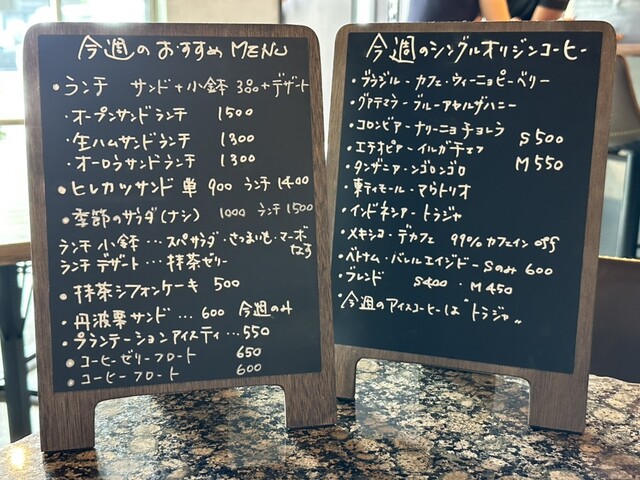 今週のおすすめ MENU
・ランチ サンド+小鉢3品+デザート
・オープンサンドランチ 1500
・生ハムサンドランチ 1300
・オーロラサンドランチ 1300
・ヒレカツサンド 単 900 ランチ 1400
・季節のサラダ(ナシ) 1000 ランチ 1500
ランチ 小鉢…スパサラダ・さつまいも・マーボなす
ランチ デザート…抹茶ゼリー
・抹茶シフォンケーキ 500
・丹波栗サンド…600 今週のみ
・プランテーションアイスティ…550
・コーヒーゼリーフロート 650
・コーヒーフロート 600
今週のシングルオリジンコーヒー
・ブラジル-カフェ・ヴィーニョピーベリー
・グァテマラ-ブルーアセルザハニー
・コロンビア-ナリーニョ チョレラ
S 500
・エチオピア-イルガチェフェ
M 550
・タンザニア-ンゴロンゴロ
・東ティモール-
・インドネシア-トラジャ
・メキシコ-デカフェ 99%カフェインoff
・ベトナム-バレルエイジド-Sのみ 600
・ブレンド S400・M450
・今週のアイスコーヒーは"トラジャ"